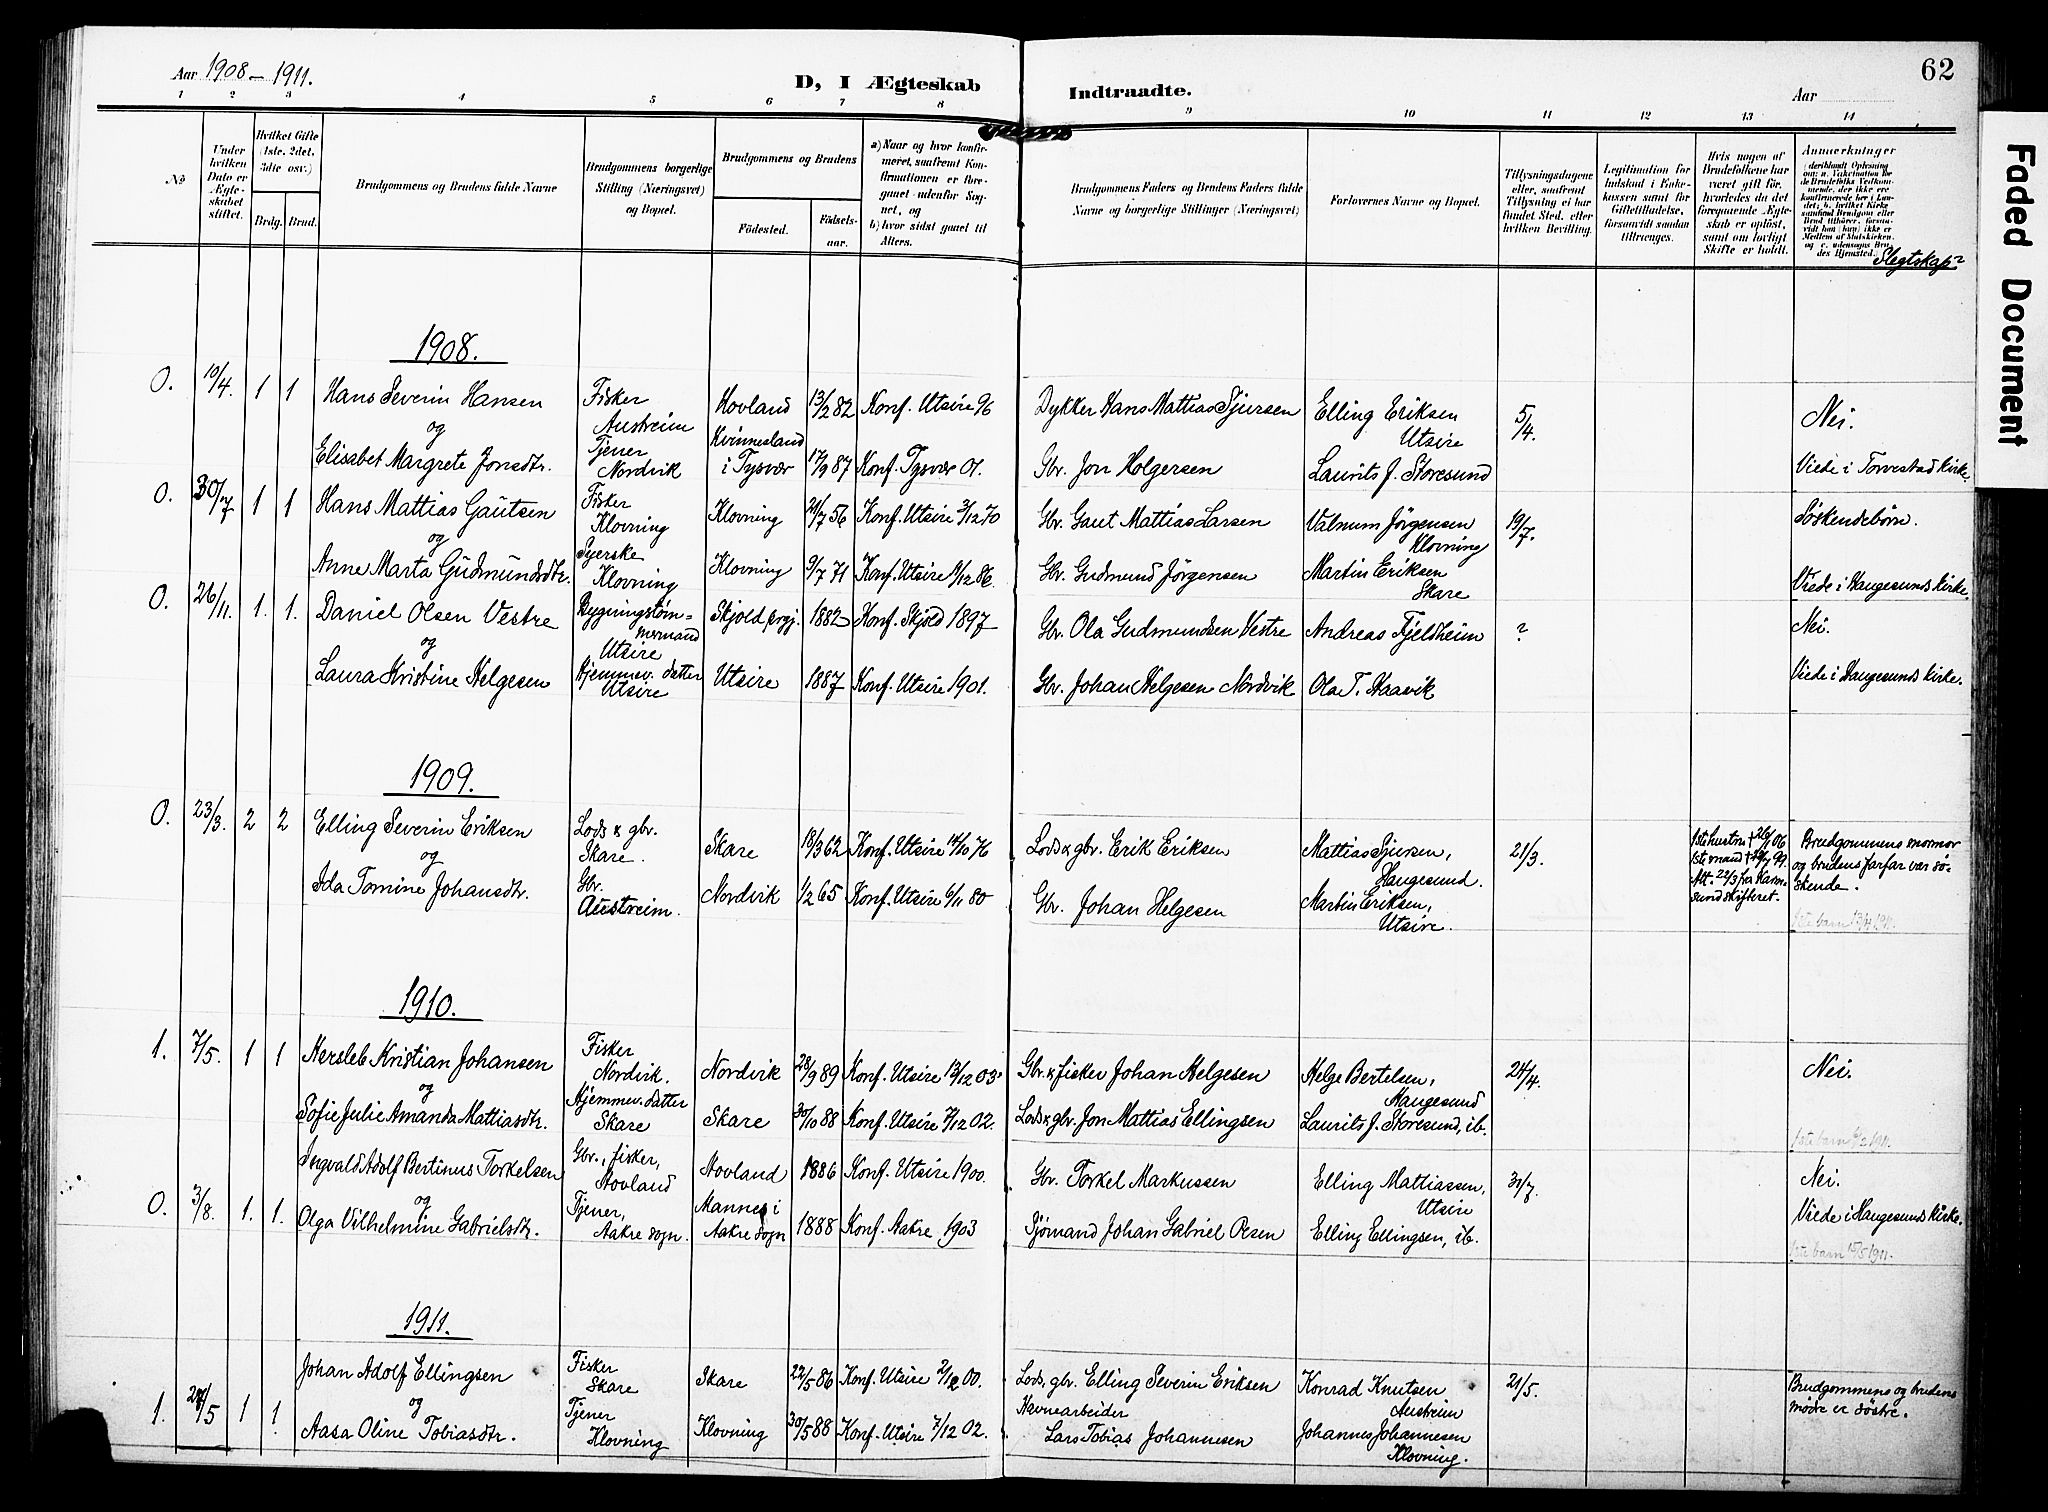 Aar 1908–1911.
D, I Ægteskab Indtraadte.
Aar
62
Faded Document
1 2 3 4 5 6 7 8 9 10 11 12 13 14
No
Under hvilken Dato er Ægteskabet stiftet.
Hvilket Gifte (1ste, 2det, 3die osv.)
Brdg. Brud.
Brudgommens og Brudens fulde Navne
Brudgommens borgerlige Stilling (Næringsvei) og Bopæl.
Brudgommens og Brudens
Fødested. Fødselsaar.
a) Naar og hvor konfirmeret, saafremt Konfirmationen er foregaaet udenfor Sognet, og
b) hvor sidst gaaet til Alters.
Brudgommens Faders og Brudens Faders fulde Navne og borgerlige Stillinger (Næringsvei)
Forlovernes Navne og Bopæl.
Tillysningsdagene eller, saafremt Tillysning ei har fundet Sted, efter hvilken Bevilling.
Legitimation for Indskud i Enkekassen samt for Giftetilladelse, forsaavidt saadan tiltrænges.
Hvis nogen af Brudefolkene har været gift før, hvorledes da det foregaaende Ægteskab er opløst, samt om lovligt Skifte er holdt.
Anmærkninger
Slegtskap?
1908.
0. 19/4. 1 1 Hans Severin Hansen Fisker Austreim Hovland 13/2 82 Konf. Utsire 96 Dykker Hans Mattias Sjursen Elling Eriksen Utsire 5/4. Nei.
og
Elisabet Margrete Jonsdtr. Tjener Nordvik Kvinnesland i Tysvær 17/9 87 Konf. Tysvær 01. Gbr. Jon Holgersen Laurits J. Storesund Viede i Torvestad kirke.
0. 30/7 1 1 Hans Mattias Gautsen Fisker Klovning Klovning 21/7 56 Konf. Utsire 3/12 70 Gbr. Gaut Mattias Larsen Valnum Jørgensen Klovning 19/7. Søskendebørn.
og
Anne Marta Gudmundsdtr. Syerske Klovning Klovning 9/7 71 Konf. Utsire 9/12 86. Gbr. Gudmund Jørgensen Martin Eriksen Skare Viede i Haugesunds kirke.
0. 26/11. 1. 1. Daniel Olsen Vestre Bygningstømmermand Utsire Skjold prgj. 1882 Konf. Skjold 1897 Gbr. Ola Gudmundsen Vestre Andreas Fjeldheim ? Nei.
og
Laura Kristine Helgesen Hjemmev. datter Utsire Utsire 1887 Konf. Utsire 1901. Gbr. Johan Helgesen Nordvik Ola T. Haavik Viede i Haugesunds kirke.
1909.
0. 23/3. 2 2 Elling Severin Eriksen Lods & gbr. Skare. Skare 18/3 62 Konf. Utsire 14/10 76 Lods & gbr. Erik Eriksen Mattias Sjursen, Haugesund. 21/3. 1ste hustru † 26/1 06 1ste mand † 19/7 99. Att. 22/3 fra Karmsund skifteret. Brudgommens mormor og brudens farfar var søskende.
og
Ida Tomine Johansdtr. Gbr. Austreim. Nordvik 1/2 65 Konf. Utsire 6/11 80 Gbr. Johan Helgesen Martin Eriksen, Utsire. 1ste barn 13/4 1911.
1910.
1. 7/5. 1 1 Hersleb Kristian Johansen Fisker Nordvik. Nordvik 28/9 89 Konf. Utsire 13/12 03. Gbr. & fisker Johan Helgesen Helge Bertelsen, Haugesund 24/4. Nei.
og
Sofie Julie Amanda Mattiasdtr. Hjemmev. datter Skare Skare 30/10 88 Konf. Utsire 7/12 02. Lods & gbr. Jon Mattias Ellingsen Laurits J. Storesund, ib. 1ste barn 6/2 1911.
0. 3/8. 1. 1. Ingvald Adolf Bertinus Torkelsen Gbr., fisker, Hovland Hovland 1886 Konf. Utsire 1900. Gbr. Torkel Markussen Elling Mattiassen, Utsire 31/7. Nei.
og
Olga Vilhelmine Gabrielsdtr. Tjener, Aakre sogn. Mannes i Aakre sogn 1888 Konf. Aakre 1903 Sjømand Johan Gabriel Olsen Elling Ellingsen, ib. Viede i Haugesunds kirke.
1ste barn 15/5 1911.
1911.
1. 24/5 1 1. Johan Adolf Ellingsen Fisker Skare Skare 22/5 86 Konf. Utsire 2/12 00. Lods, gbr. Elling Severin Eriksen Konrad Knutsen Austreim 21/5. Brudgommens og brudens mødre er søstre.
og
Aasa Oline Tobiasdtr. Tjener Klovning Klovning 30/5 88 Konf. Utsire 7/12 02. Havnearbeider Lars Tobias Johannesen Johannes Johannesen Klovning.